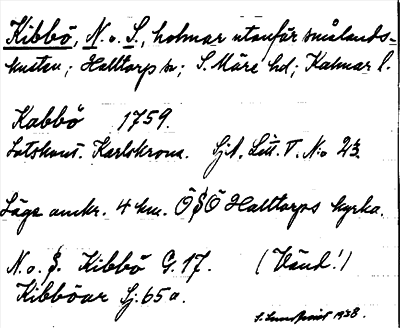 Kibbö, N. o. S., holmar utanför smålands-
kusten; Halltorp sn; S. Möre hd; Kalmar l.
Kabbö 1759.
Lotskont. Karlskrona. SjA. Litt. V. N:o 23.
Läge omkr. 4 km. ÖSÖ Halltorps kyrka.
N. o. S. Kibbö G. 17. (Vänd!)
Kibböar Sj. 65 a.
1928.